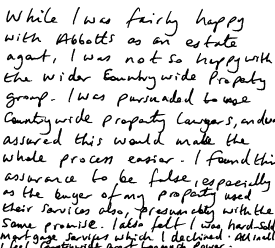 While I was fairly happy
with Abbotts as an estate
agent, I was not so happy with
the wider Countrywide Property
group. I was pursuaded to use
Countrywide property lawyers, and was
assured this would make the
whole process easier. I found this
assurance to be false, especially
as the buyer of my property used
their services also, presumably with the
same promise. I also felt I was hard-sold
mortgage services which I declined.
I feel Countrywide